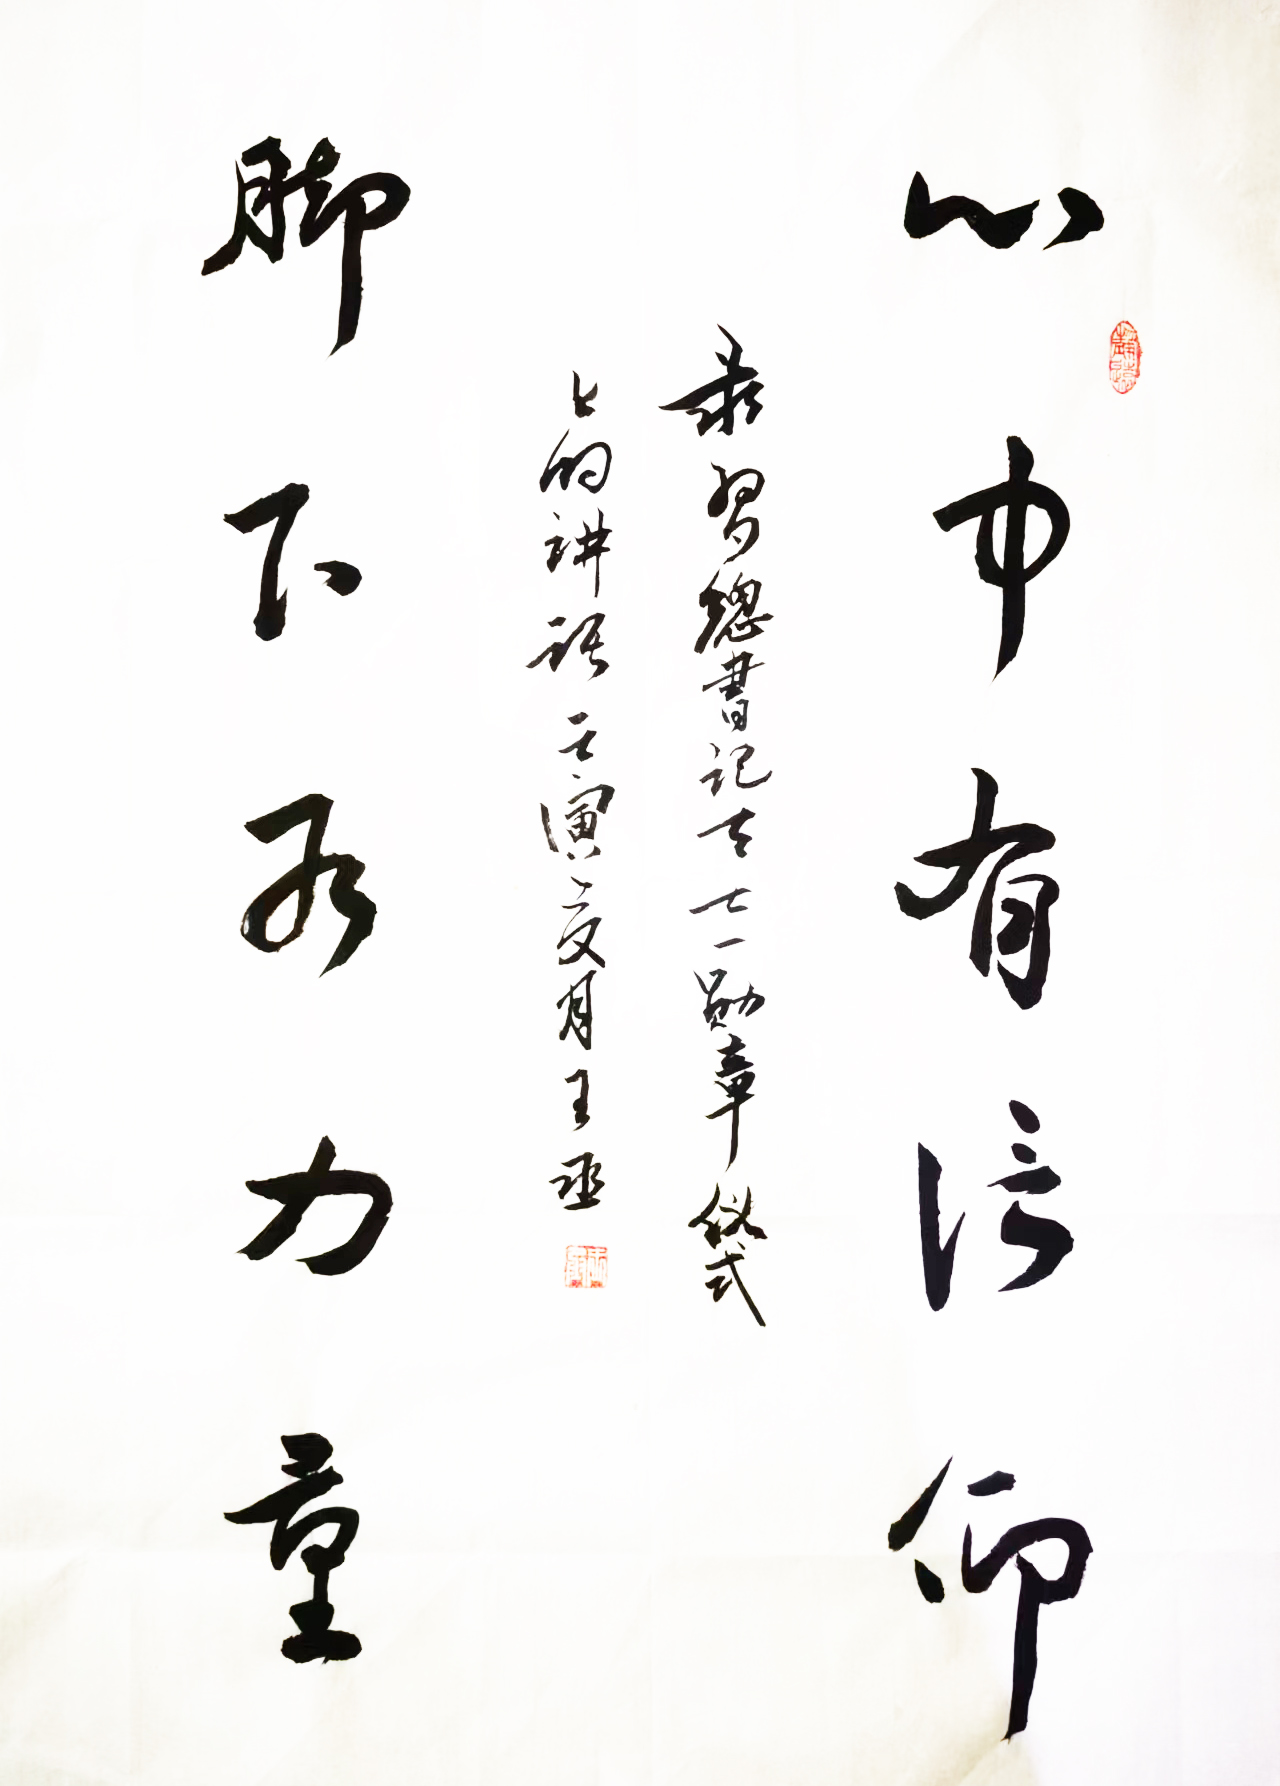 心中有信仰
录習總書記在七一勋章仪式
上的讲话 壬寅夏月王丞
脚下有力量